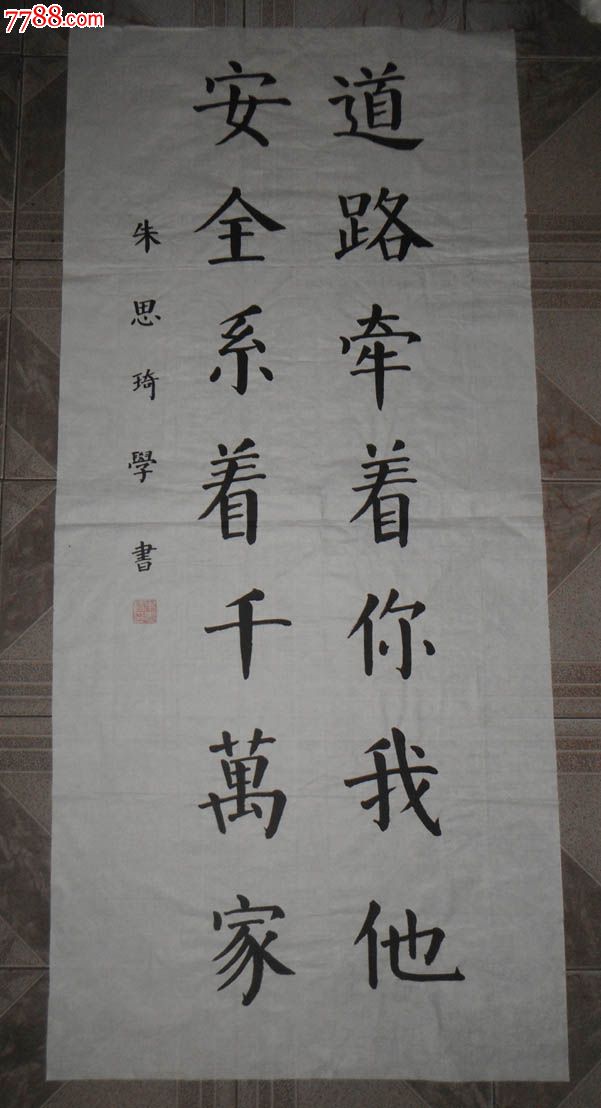 7788.com
道路牵着你我他
安全系着千萬家
朱思琦學書